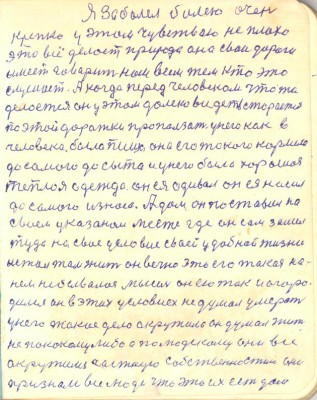 Я заболел болею очен
крепко у этом чувствваю не плохо
это всё делает природа она свои дороги
имеет говорит нам всем тем кто это
слушает. А когда перед человеком что та
делается он у этом должо видет старается
по этой дорожки проползат. у него как в
человека. была пища она его токого кормила
до самого до сыта и у него была хорошая
тёплоя одежда. он ея одивал он ея насил
до самого износа. А дом он поставил на
своем указаном месте где он сам зашел
туда на свое условие своей удобнай жизни
и стал там жит он вечно это его такая
нем небывалоя мысля он его так и огоро
дился он в этих условиех не думал умерат
у него такие дело окружило он думал жит
не по какому либо а по людскому они все
окружились частную собственостию они
признали все люди что это их ест дом